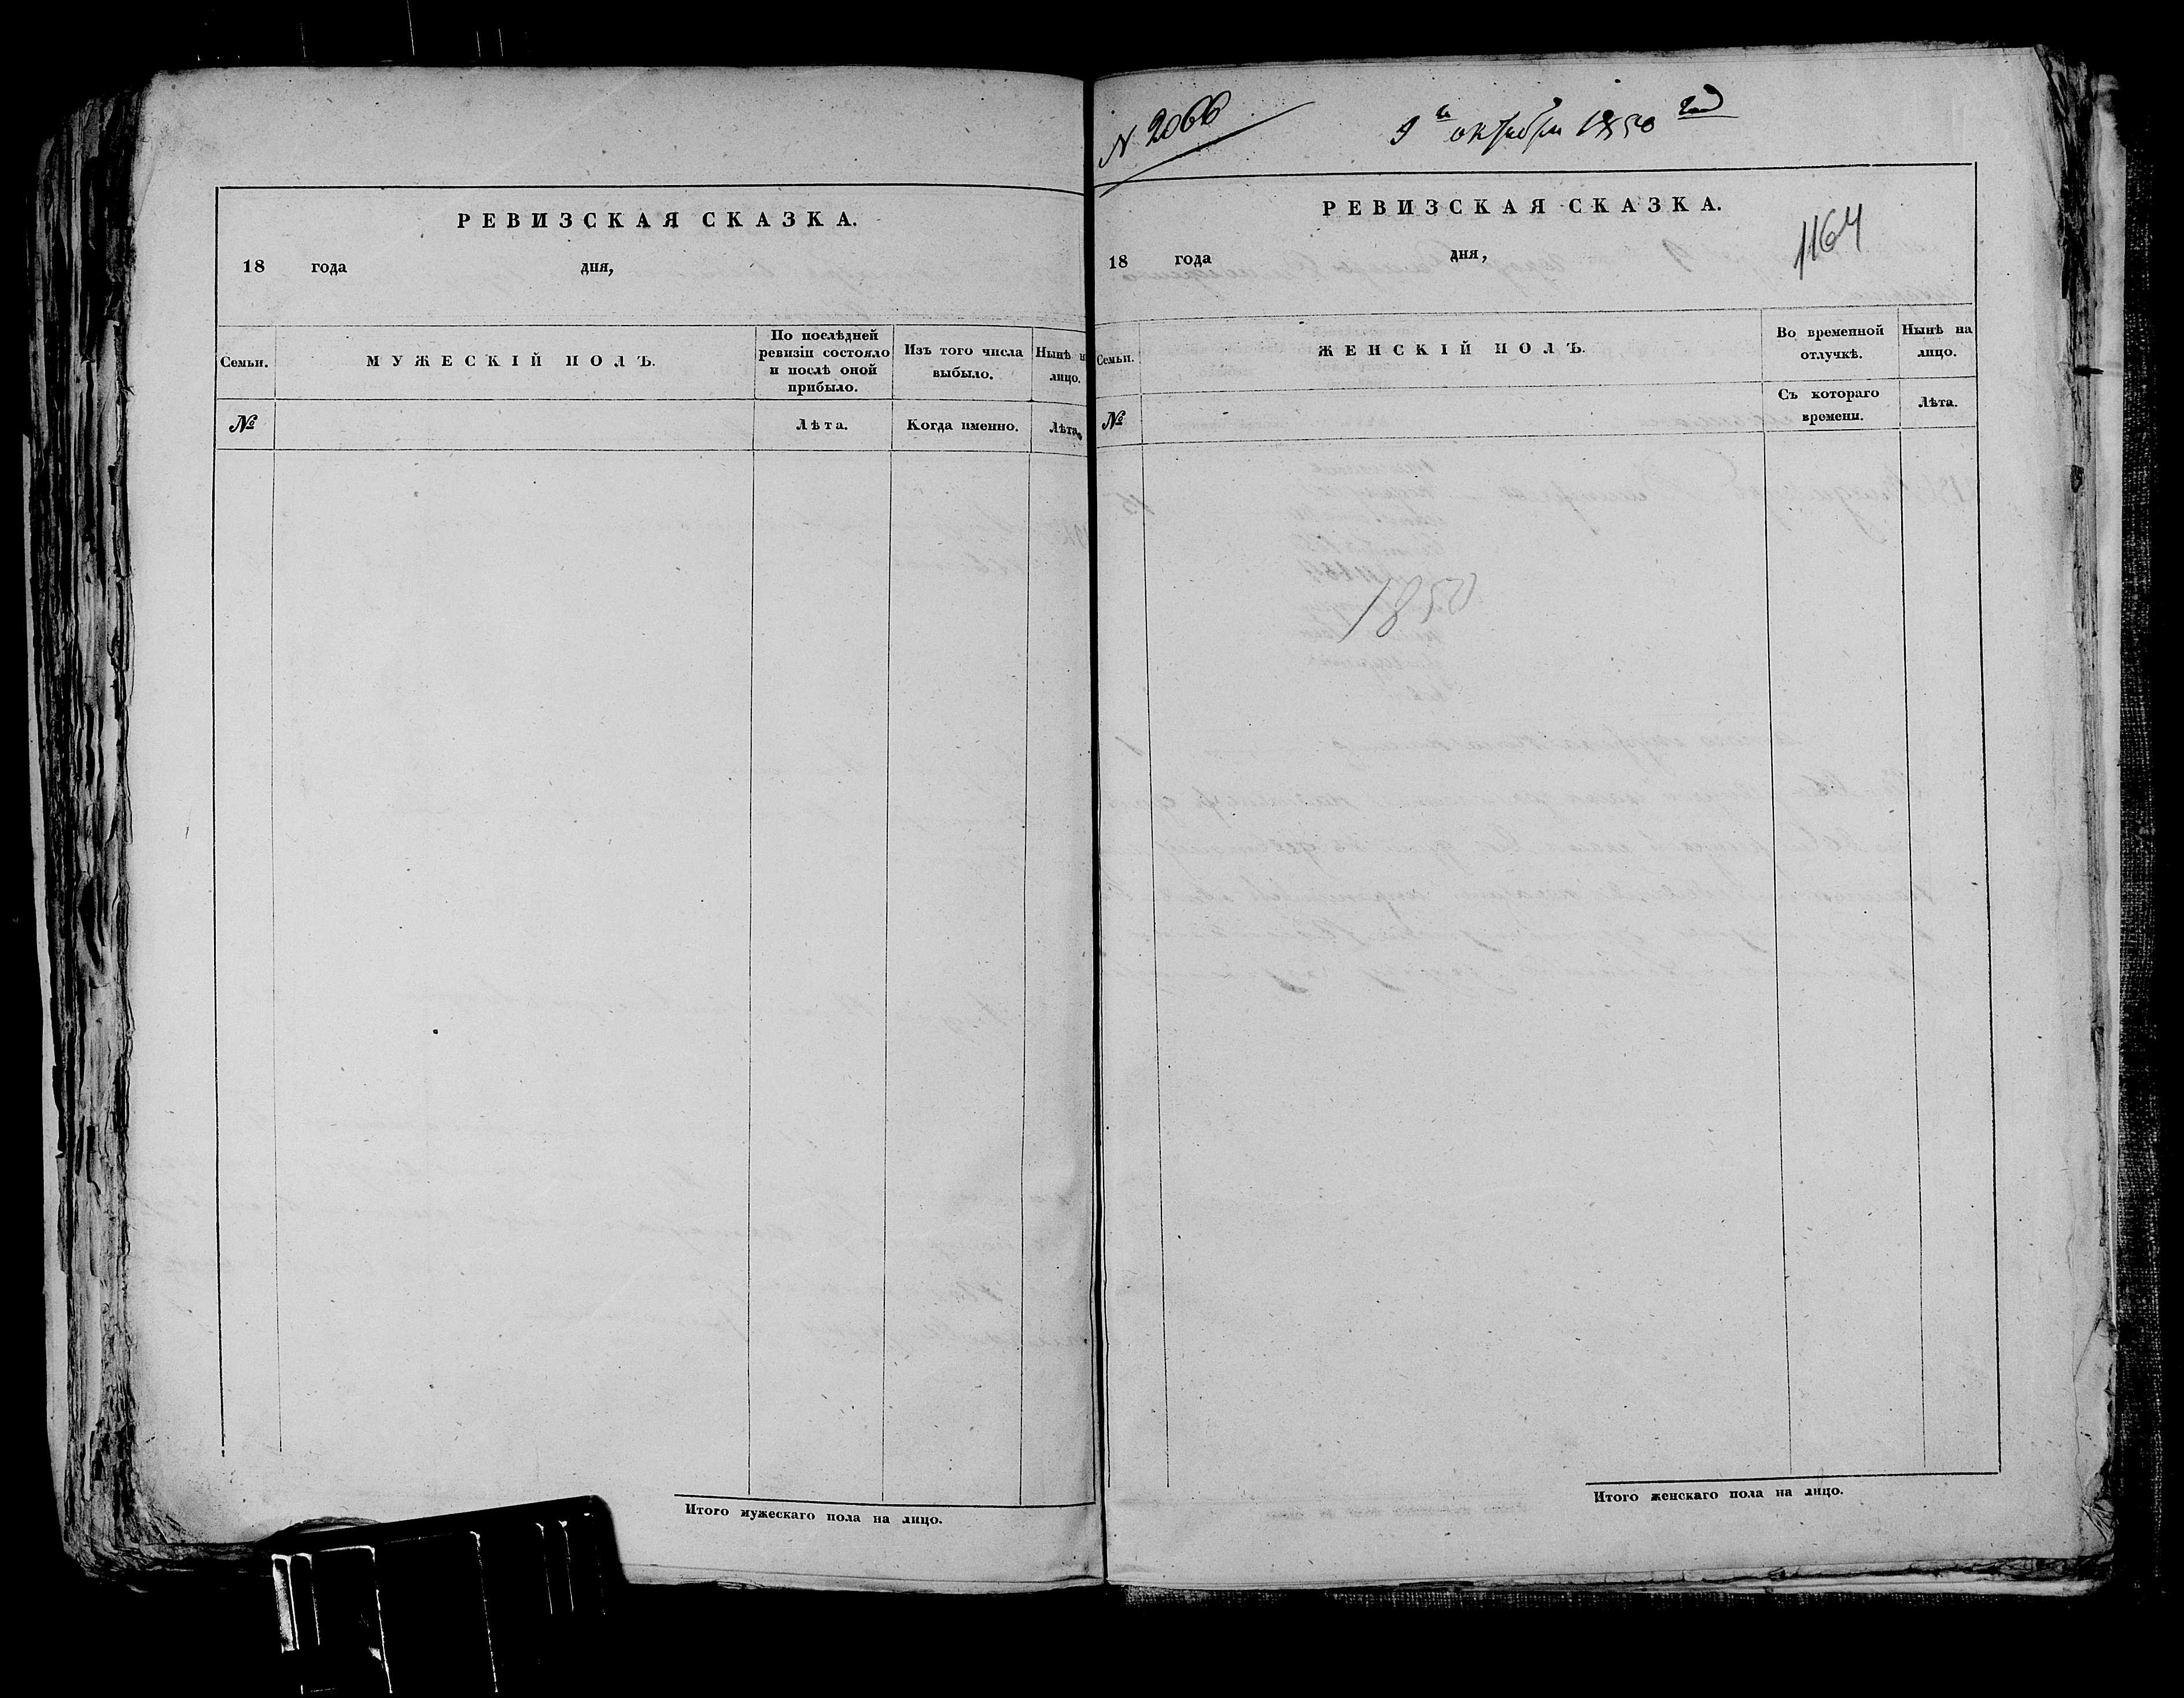 РЕВИЗСКАЯ СКАЗКА.
18 года дня,
Семьи.
МУЖЕСКІЙ ПОЛЪ.
По послѣдней
ревизіи состояло
и послѣ оной
прибыло.
Изъ того числа
выбыло.
Нынѣ н
лицо.
№
Лѣта.
Когда именно.
Лѣта.
Итого мужескаго пола на лицо.
N 2066
9го октября 1850 год
РЕВИЗСКАЯ СКАЗКА.
1164
18 года дня,
Семьи.
ЖЕНСКІЙ ПОЛЪ.
Во временной
отлучкѣ.
Нынѣ на
лицо.
№
Съ котораго
времени.
Лѣта.
1850
Итого женскаго пола на лицо.